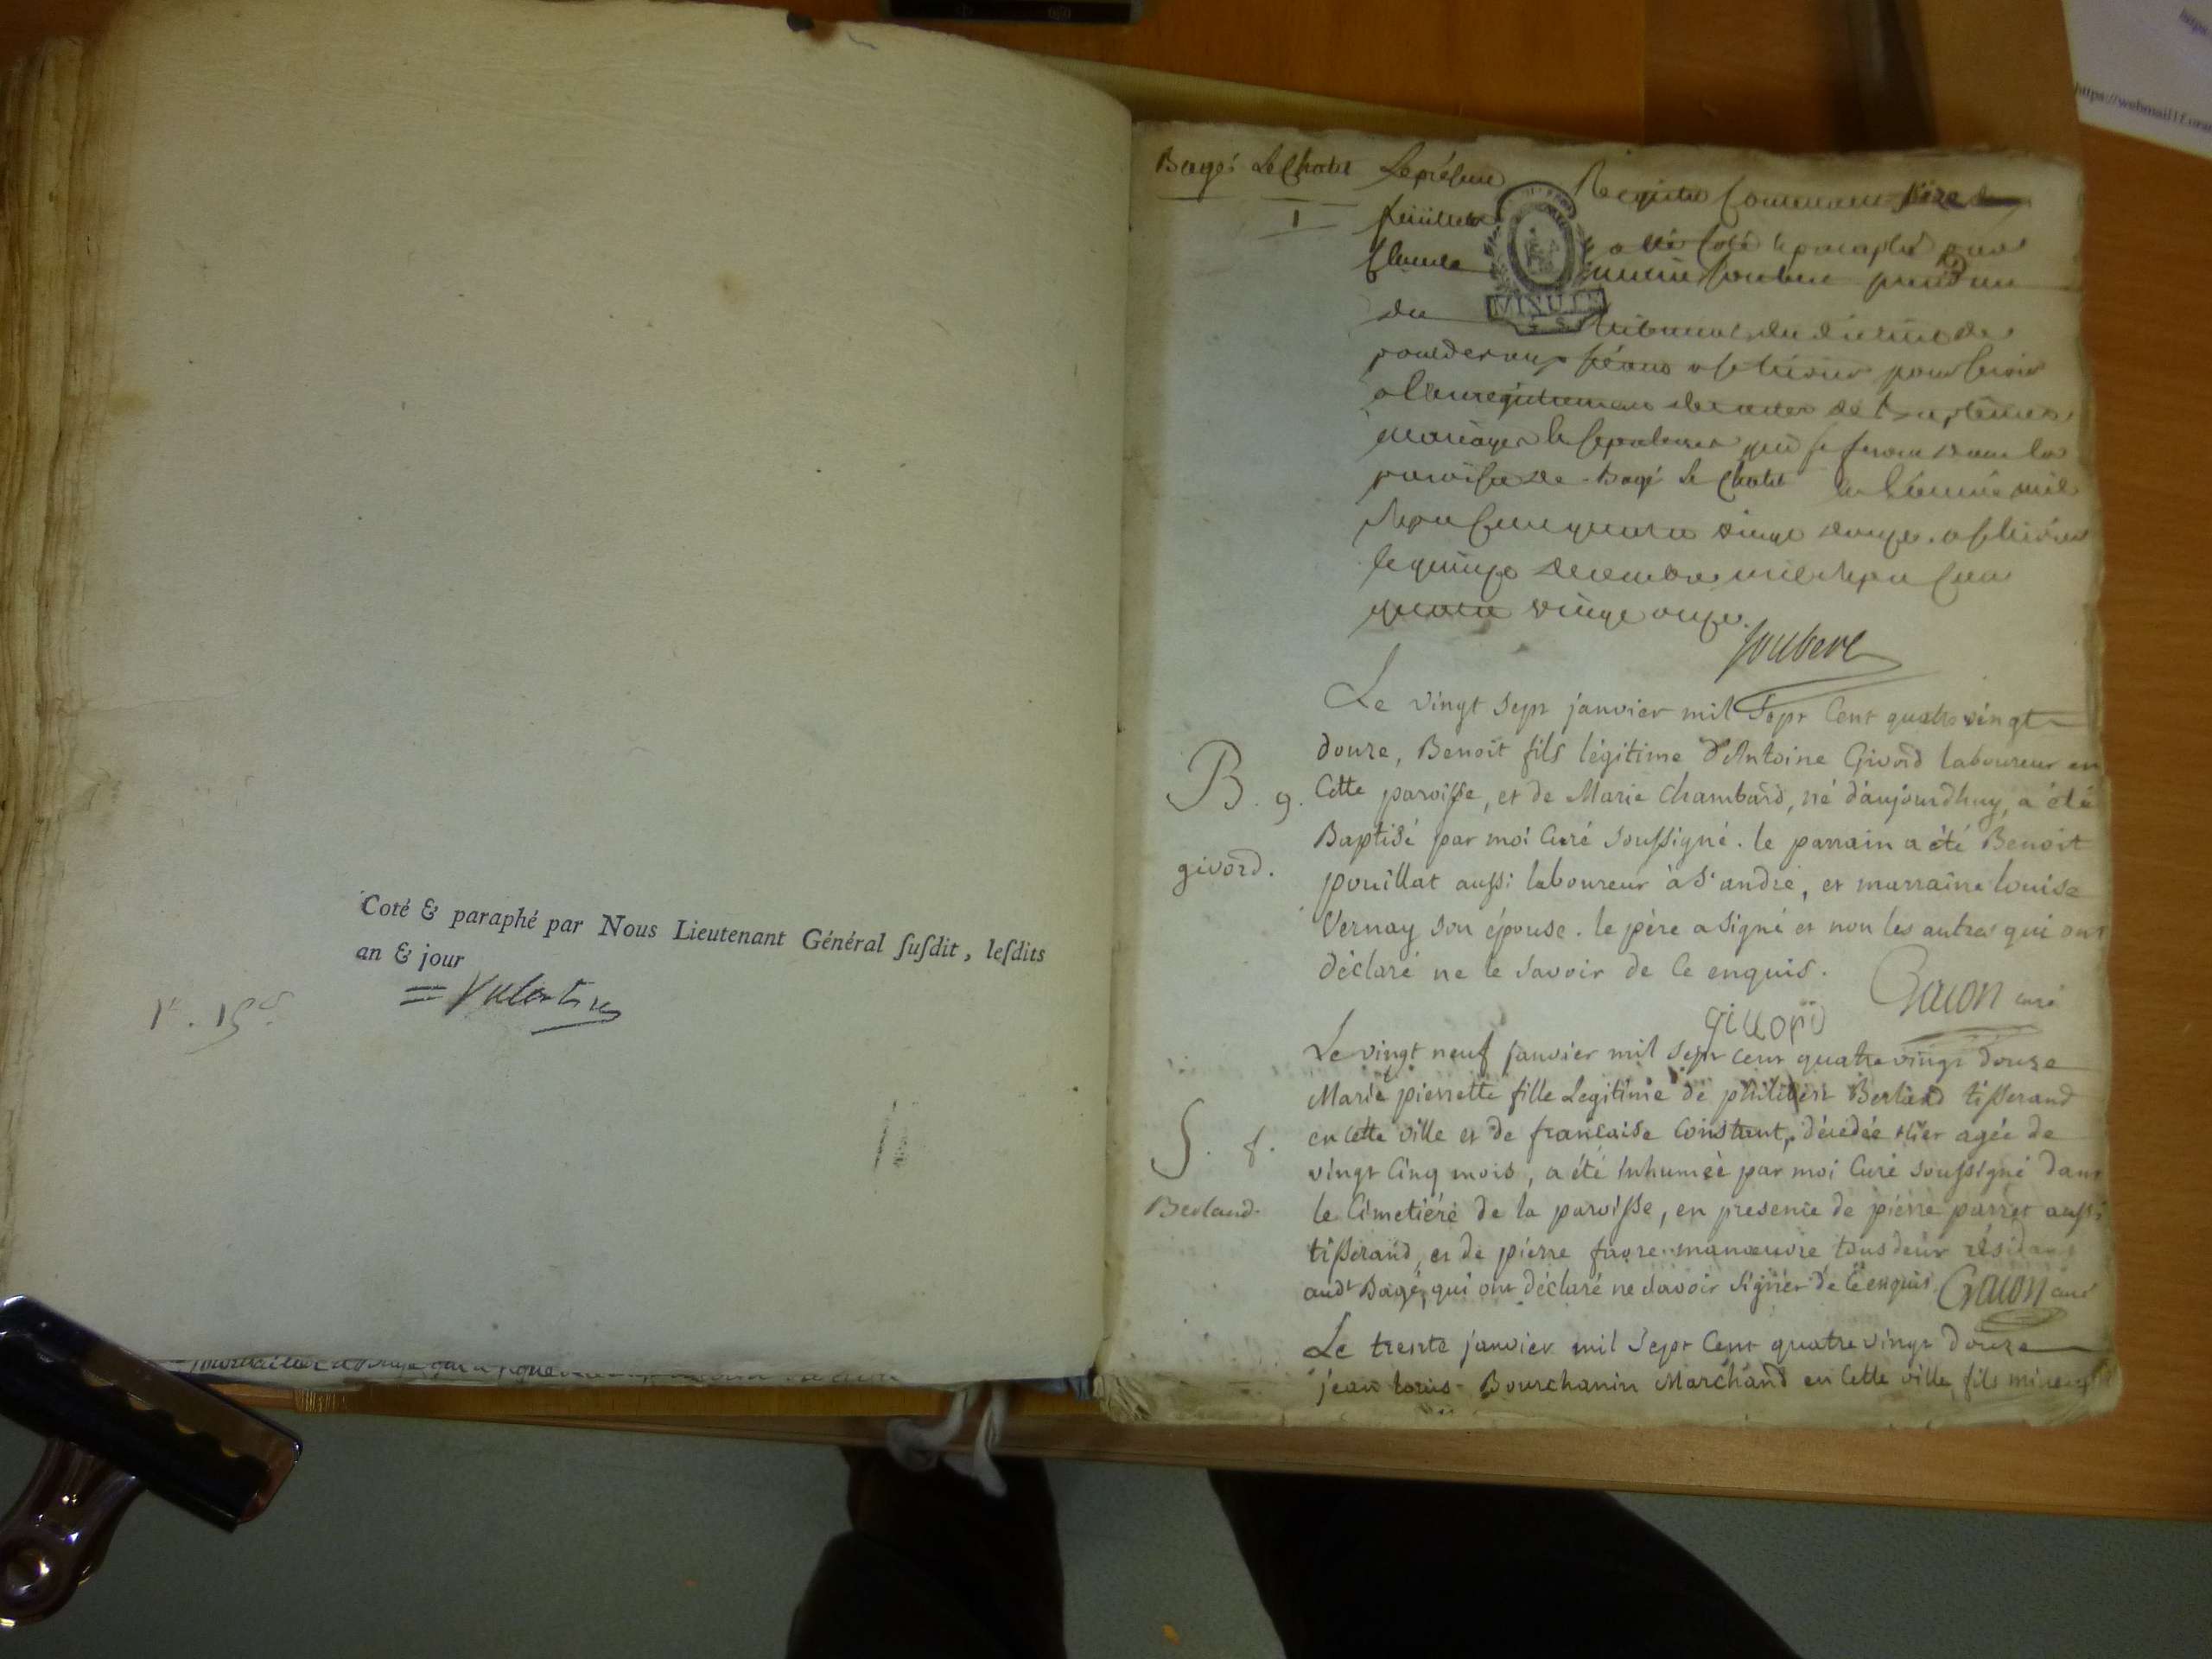 Coté & paraphé par Nous Lieutenant Général ſuſdit, leſdits
an & jour
Bagé Le Chatel
1
Le présent Registre contenant
feuillets a été coté & paraphé par
président
du MINUTE tribunal du district de
pontdevaux séant a pour servir
a l'enregistrement des actes de baptêmes
mariages & sepultures qui se feront dans la
paroisse de Bagé Le Chatel en l'année mil
sept cent quatre vingt douze
le quinze decembre mil sept cent
quatre vingt onze.
Joubert
Le vingt sept janvier mil Sept Cent quatre vingt
douze, Benoit fils légitime d'Antoine Givord laboureur en
B. g. Cette paroisse, et de Marie Chambard, né d'aujourdhuy, a été
Baptisé par moi Curé soussigné. le parrain a été Benoit
givord. pouillat aussi laboureur à St andré, et marraine louise
Vernay son épouse. le père a signé et non les autres qui ont
déclaré ne le savoir de ce enquis.
Gacon curé
givord
Le vingt neuf janvier mil sept cent quatre vingt douze
Marie pierrette fille Legitime de philibert Berland tisserand
en cette ville et de francaise Constant, décédée hier agée de
S. f.
vingt Cinq mois, a été inhumée par moi Curé soussigné dans
Berland. le Cimetière de la paroisse, en presence de pierre parret aussi
tisserand, et de pierre favre manoeuvre tous deux résidans
audt Bagé, qui ont déclaré ne savoir signer de ce enquis. Gacon curé
Le trente janvier mil Sept Cent quatre vingt douze
jean louis Bourchanin Marchand en Cette ville, fils mineur